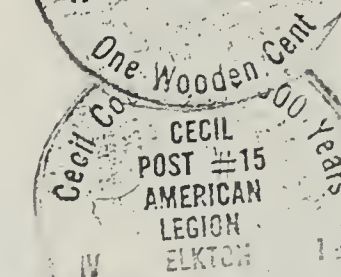 One Wooden Cent
Cecil Co
00 Years
CECIL
POST #15
AMERICAN
LEGION
ELKTON